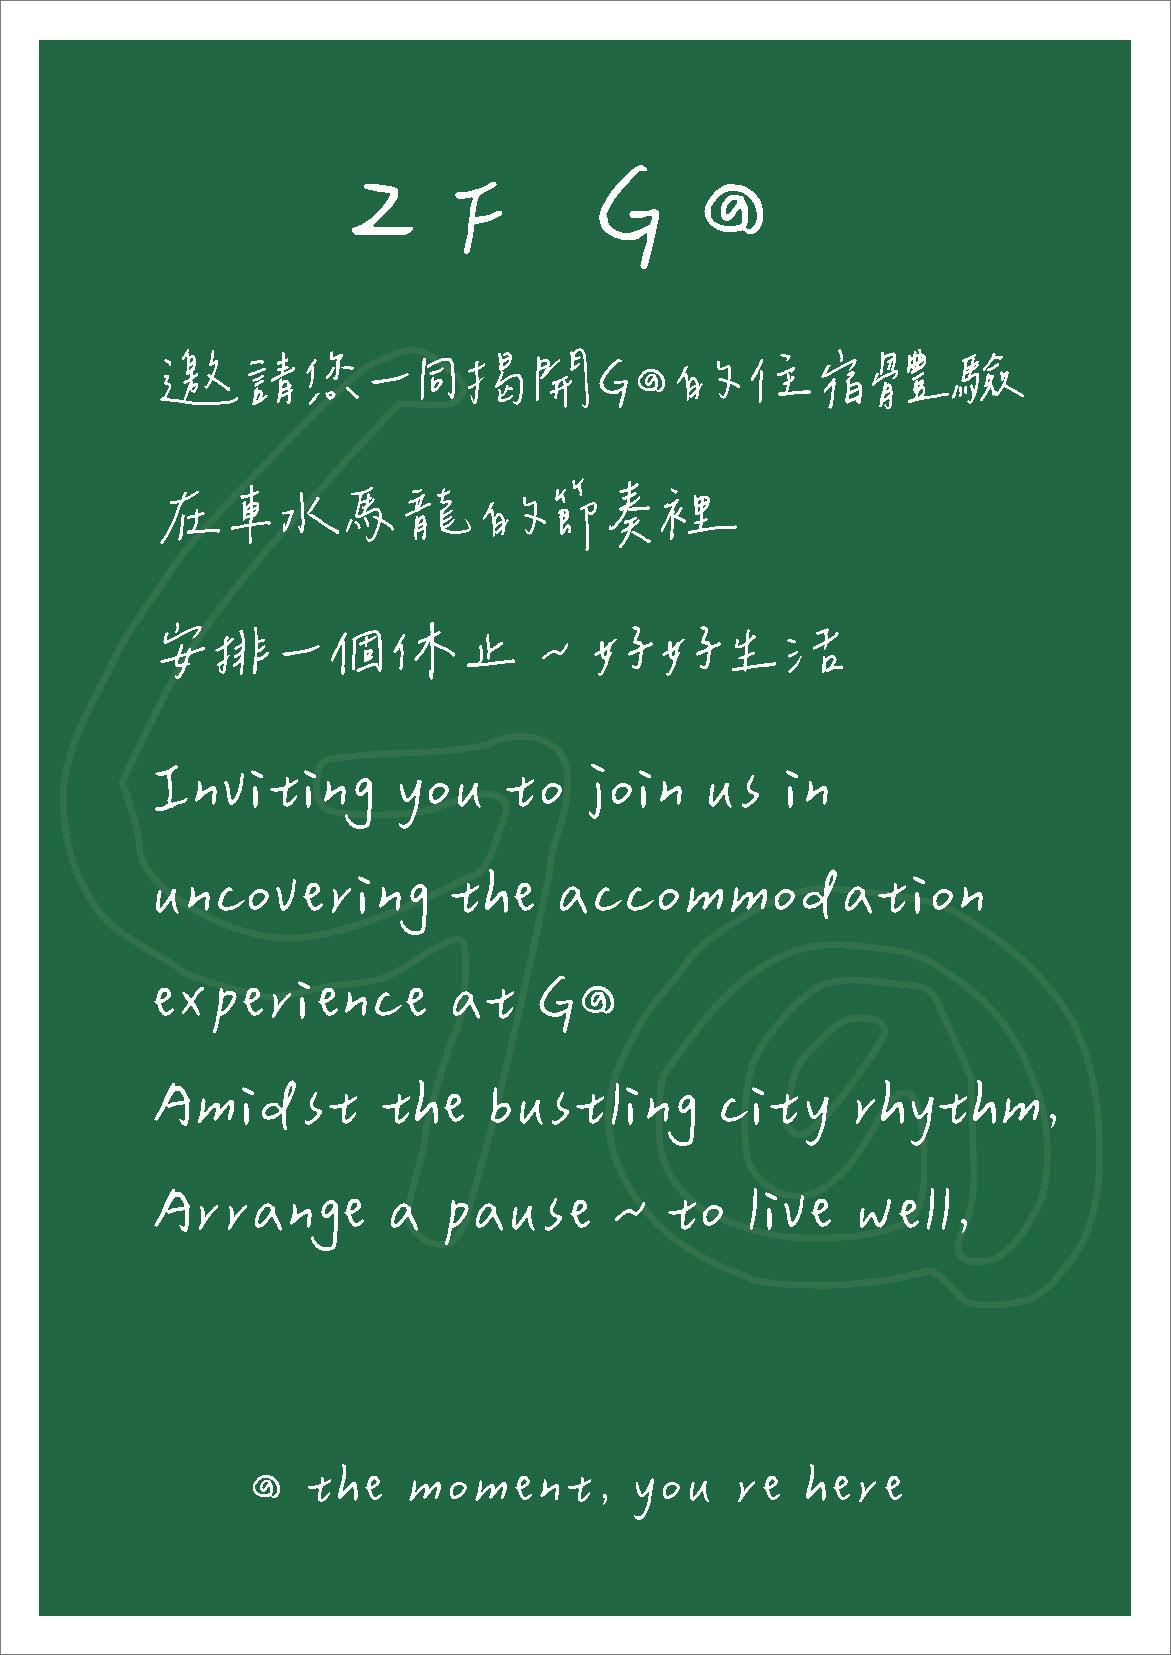 2F G@
邀請您一同揭開G@的住宿體驗
在車水馬龍的節奏裡
安排一個休止~好好生活
Inviting you to join us in
uncovering the accommodation
experience at G@
Amidst the bustling city rhythm,
Arrange a pause ~ to live well,
@ the moment, you re here
G@